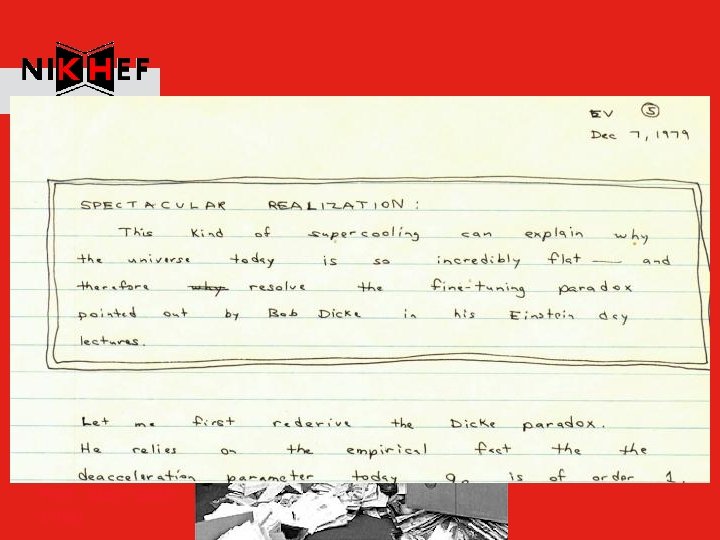 NIKHEF
EV ⑤
Dec 7, 1979
SPECTACULAR REALIZATION:
This kind of supercooling can explain why
the universe today is so incredibly flat — and
therefore why resolve the fine-tuning paradox
pointed out by Bob Dicke in his Einstein day
lectures.
Let me first rederive the Dicke paradox.
He relies on the empirical fact the the
deacceleration parameter today q₀ is of order 1.